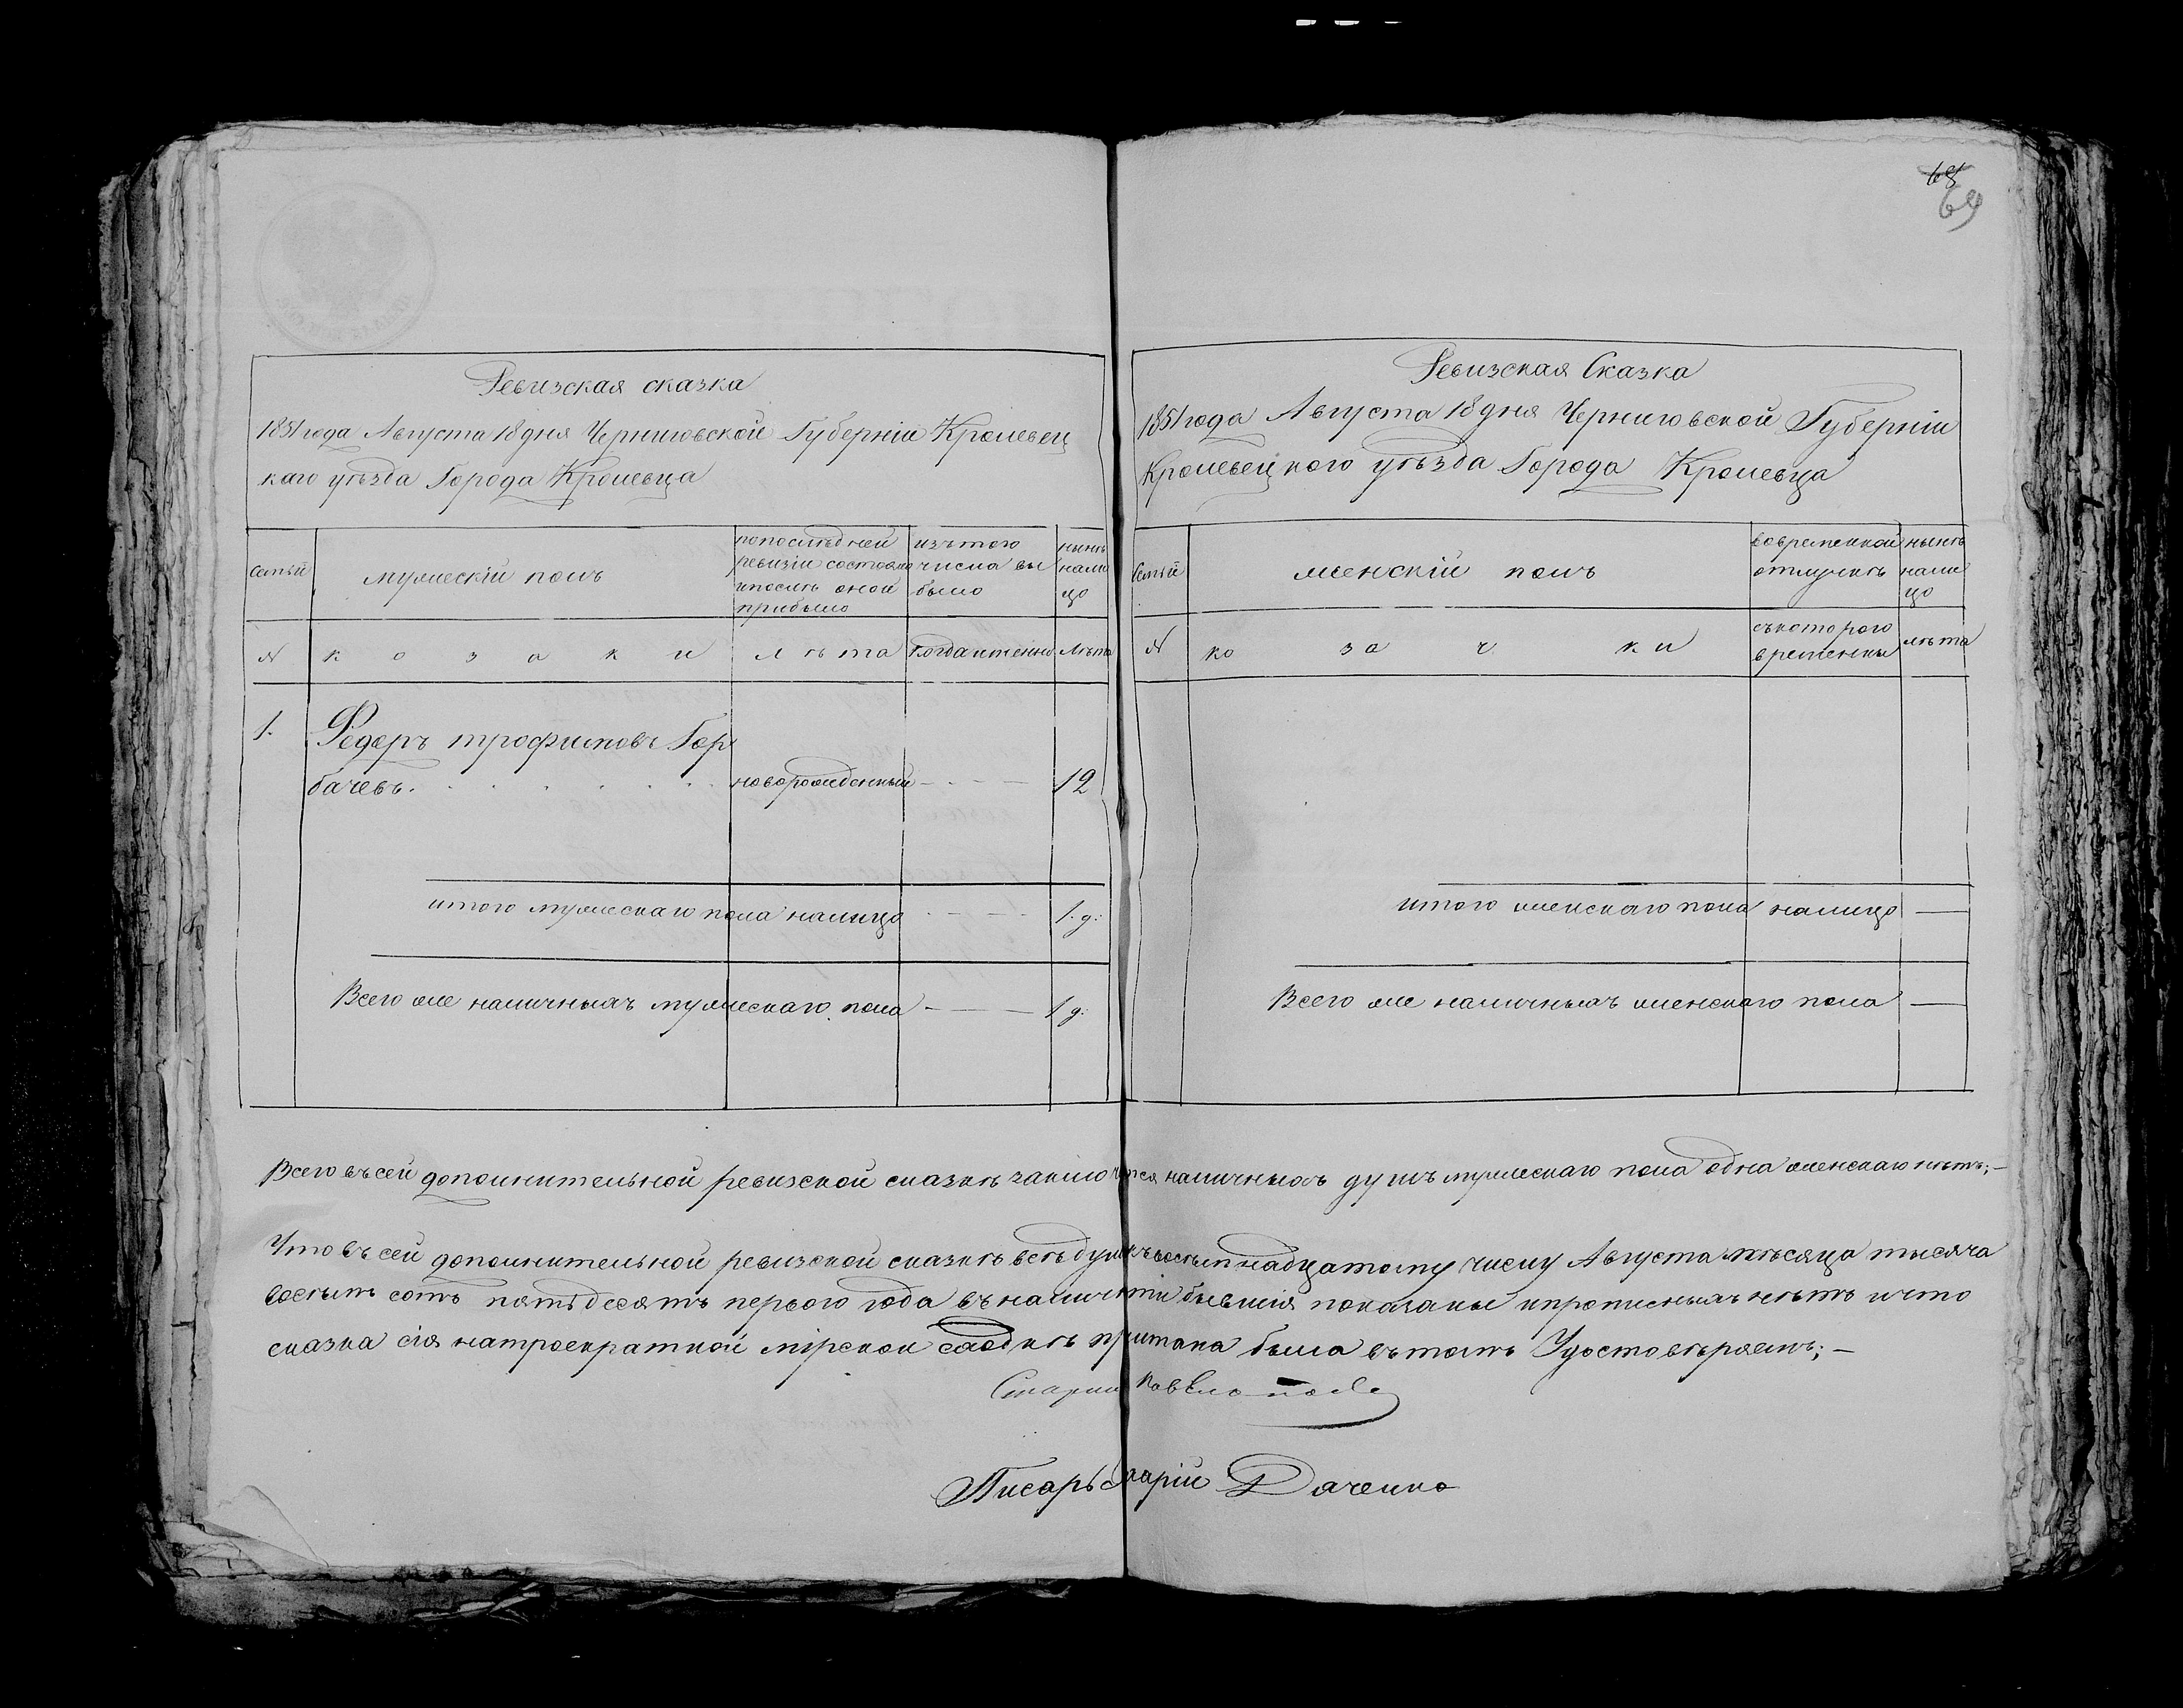 68
69
Ревизская сказка
1851 года Августа 18 дня Черниговской Губерніи Кролевец
каго уѣзда Города Кролевца
Семьи
мужескій полъ
по послѣдней
ревизіи состояло
и послѣ оной
прибыло
изъ того
числа вы
было
нынѣ
нали
цо
№
к о з а к и
л ѣ та
когда именно
лѣта
1.
Федеръ трофимовъ Гор
бачевъ . . . . . . .
новорожденный
12
итого мужескаго пола налицо
1. д:
Всего же наличныхъ мужескаго пола
1 д:
Ревизская Сказка
1851 года Августа 18 дня Черниговской Губерніи
Кролевецкого уѣзда Города Кролевца
Семьи
женскій полъ
во временной
отлучкѣ
нынѣ
нали
цо
№
ко за ч ки
съ которого
времены
лѣта
итого женскаго пола налицо —
Всего же наличныхъ женскаго пола —
Всего въ сей дополнительной ревизской сказкѣ заключается наличныхъ душъ мужескаго пола одна женскаго нѣтъ; —
Что въ сей дополнительной ревизской сказкѣ всѣ души къ восемнадцатому числу Августа мѣсяца тысяча
восемь сотъ пятьдесятъ перьвого года въ наличнти бывшія показаны и прописныхъ нѣтъ и что
сказка сія на троекратной мірской сходкѣ читана была въ томъ Удостовѣряемъ; —
Писарь Даченко